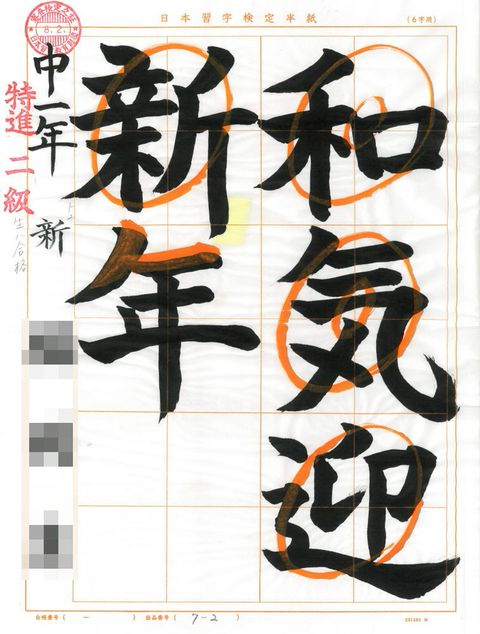 日本習字検定半紙
(6字用)
和気迎
新年
8.2.
特進 二級
中一年
新
合格
台帳番号( ー ) 出品番号( 7-2 )